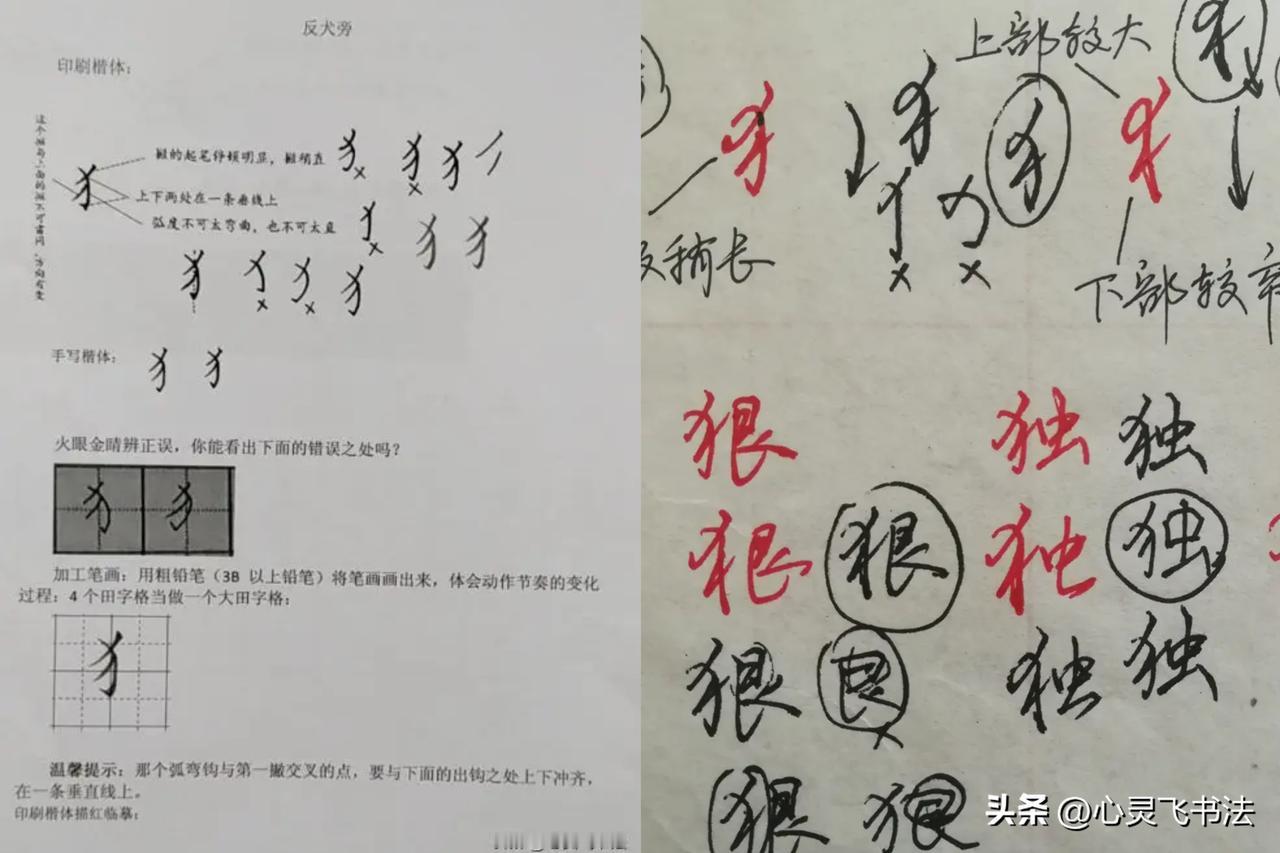 反犬旁
印刷楷体：
这个撇与上面的撇不可雷同，方向有变
撇的起笔停顿明显，撇稍直
上下两处在一条垂线上
弧度不可太弯曲，也不可太直
犭
手写楷体：犭 犭
火眼金睛辨正误，你能看出下面的错误之处吗？
犭 犭
加工笔画：用粗铅笔（3B 以上铅笔）将笔画画出来，体会动作节奏的变化
过程：4 个田字格当做一个大田字格：
犭
温馨提示：那个弧弯钩与第一撇交叉的点，要与下面的出钩之处上下冲齐，
在一条垂直线上。
印刷楷体描红临摹：
上部较大
犭 犭 犭 犭
稍长
下部较窄
狠 独 独
狠 狠 独 独
狠 艮 独 独
狠 狠
头条 @心灵飞书法